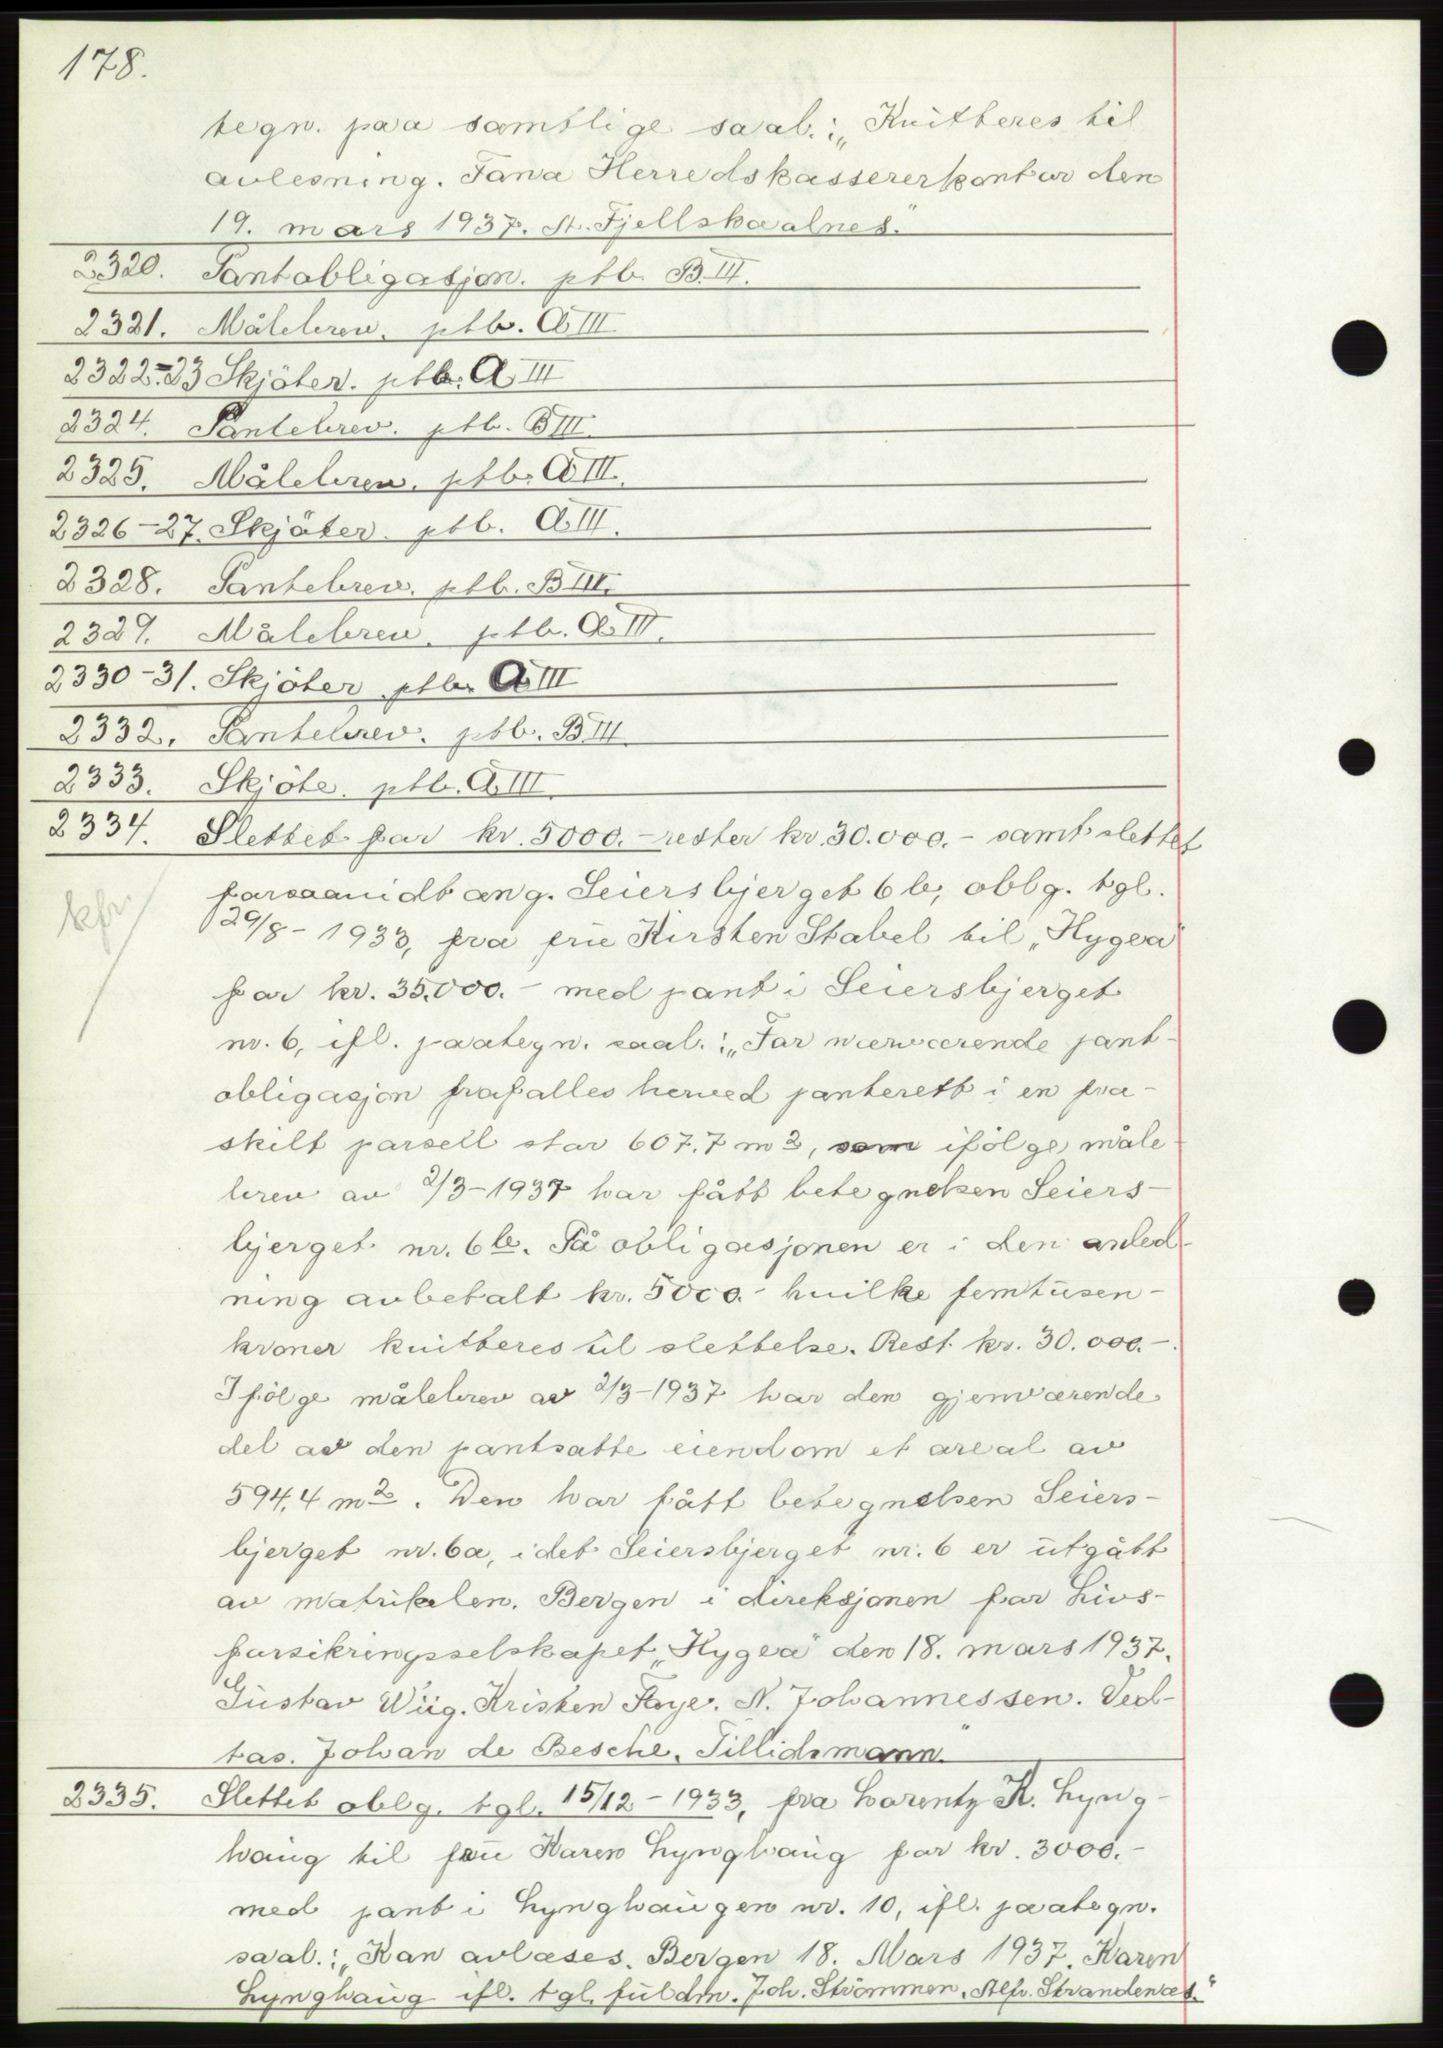 178.
tegn. paa samtlige saal.: „Kvitteres til
avlesning. Fana Herredskassererkontor den
19. mars 1937. St. Fjellskaalnes."
2320. Pantobligasjon. ptb. B.III.
2321. Målebrev. ptb. A III
2322-23 Skjöter. ptb. A III
2324. Pantebrev. ptb. B III.
2325. Målebrev. ptb. A III.
2326-27. Skjöter. ptb. A III.
2328. Pantebrev. ptb. B III.
2329. Målebrev. ptb. A III.
2330-31. Skjöter ptb. A III
2332. Pantebrev. ptb. B III.
2333. Skjöte. ptb. A III.
2334. Slettet for kr. 5000.- rester kr. 30.000.- samt slettet
kfr.
forsaavidt ang. Seiersbjerget 6 b, oblg. tgl.
29/8-1933, fra frü Kirsten Stabel til „Hygea"
for kr. 35.000.- med pant i Seiersbjerget
nr. 6, ifl. paategn. saal.: „For nærværende pant-
obligasjon frafalles herved panterett i en fra-
skilt parsell stor 607.7 m2, som ifölge måle-
brev av 2/3-1937 har fått betegnelsen Seiers-
bjerget nr. 6 b. På obligasjonen er i den anled-
ning avbetalt kr. 5000.- hvilke femtüsen-
kroner kvitteres til slettelse. Rest kr. 30.000.-.
Ifölge målebrev av 2/3-1937 har den gjenværende
del av den pantsatte eiendom et areal av
594,4 m2. Den har fått betegnelsen Seiers-
bjerget nr. 6a, idet Seiersbjerget nr. 6 er ütgått
av matrikülen. Bergen i direksjonen for Livs-
forsikringsselskapet „Hygea" den 18. mars 1937.
Güstav Wiig. Kristen Faye. N. Johannessen. Ved-
tas. Johan de Besche. Tillidsmann."
2335. Slettet oblg. tgl. 15/12-1933, fra Lorentz K. Lyng-
haüg til frü Karen Lynghaüg for kr. 3000.-
med pant i Lynghaügen nr. 10, ifl. paategn.
saal.: „Kan avlæses. Bergen 18. Mars 1937. Karen
Lynghaüg ifl. tgl. füldm. Joh. Strömmen. Alfr. Strandenæs."